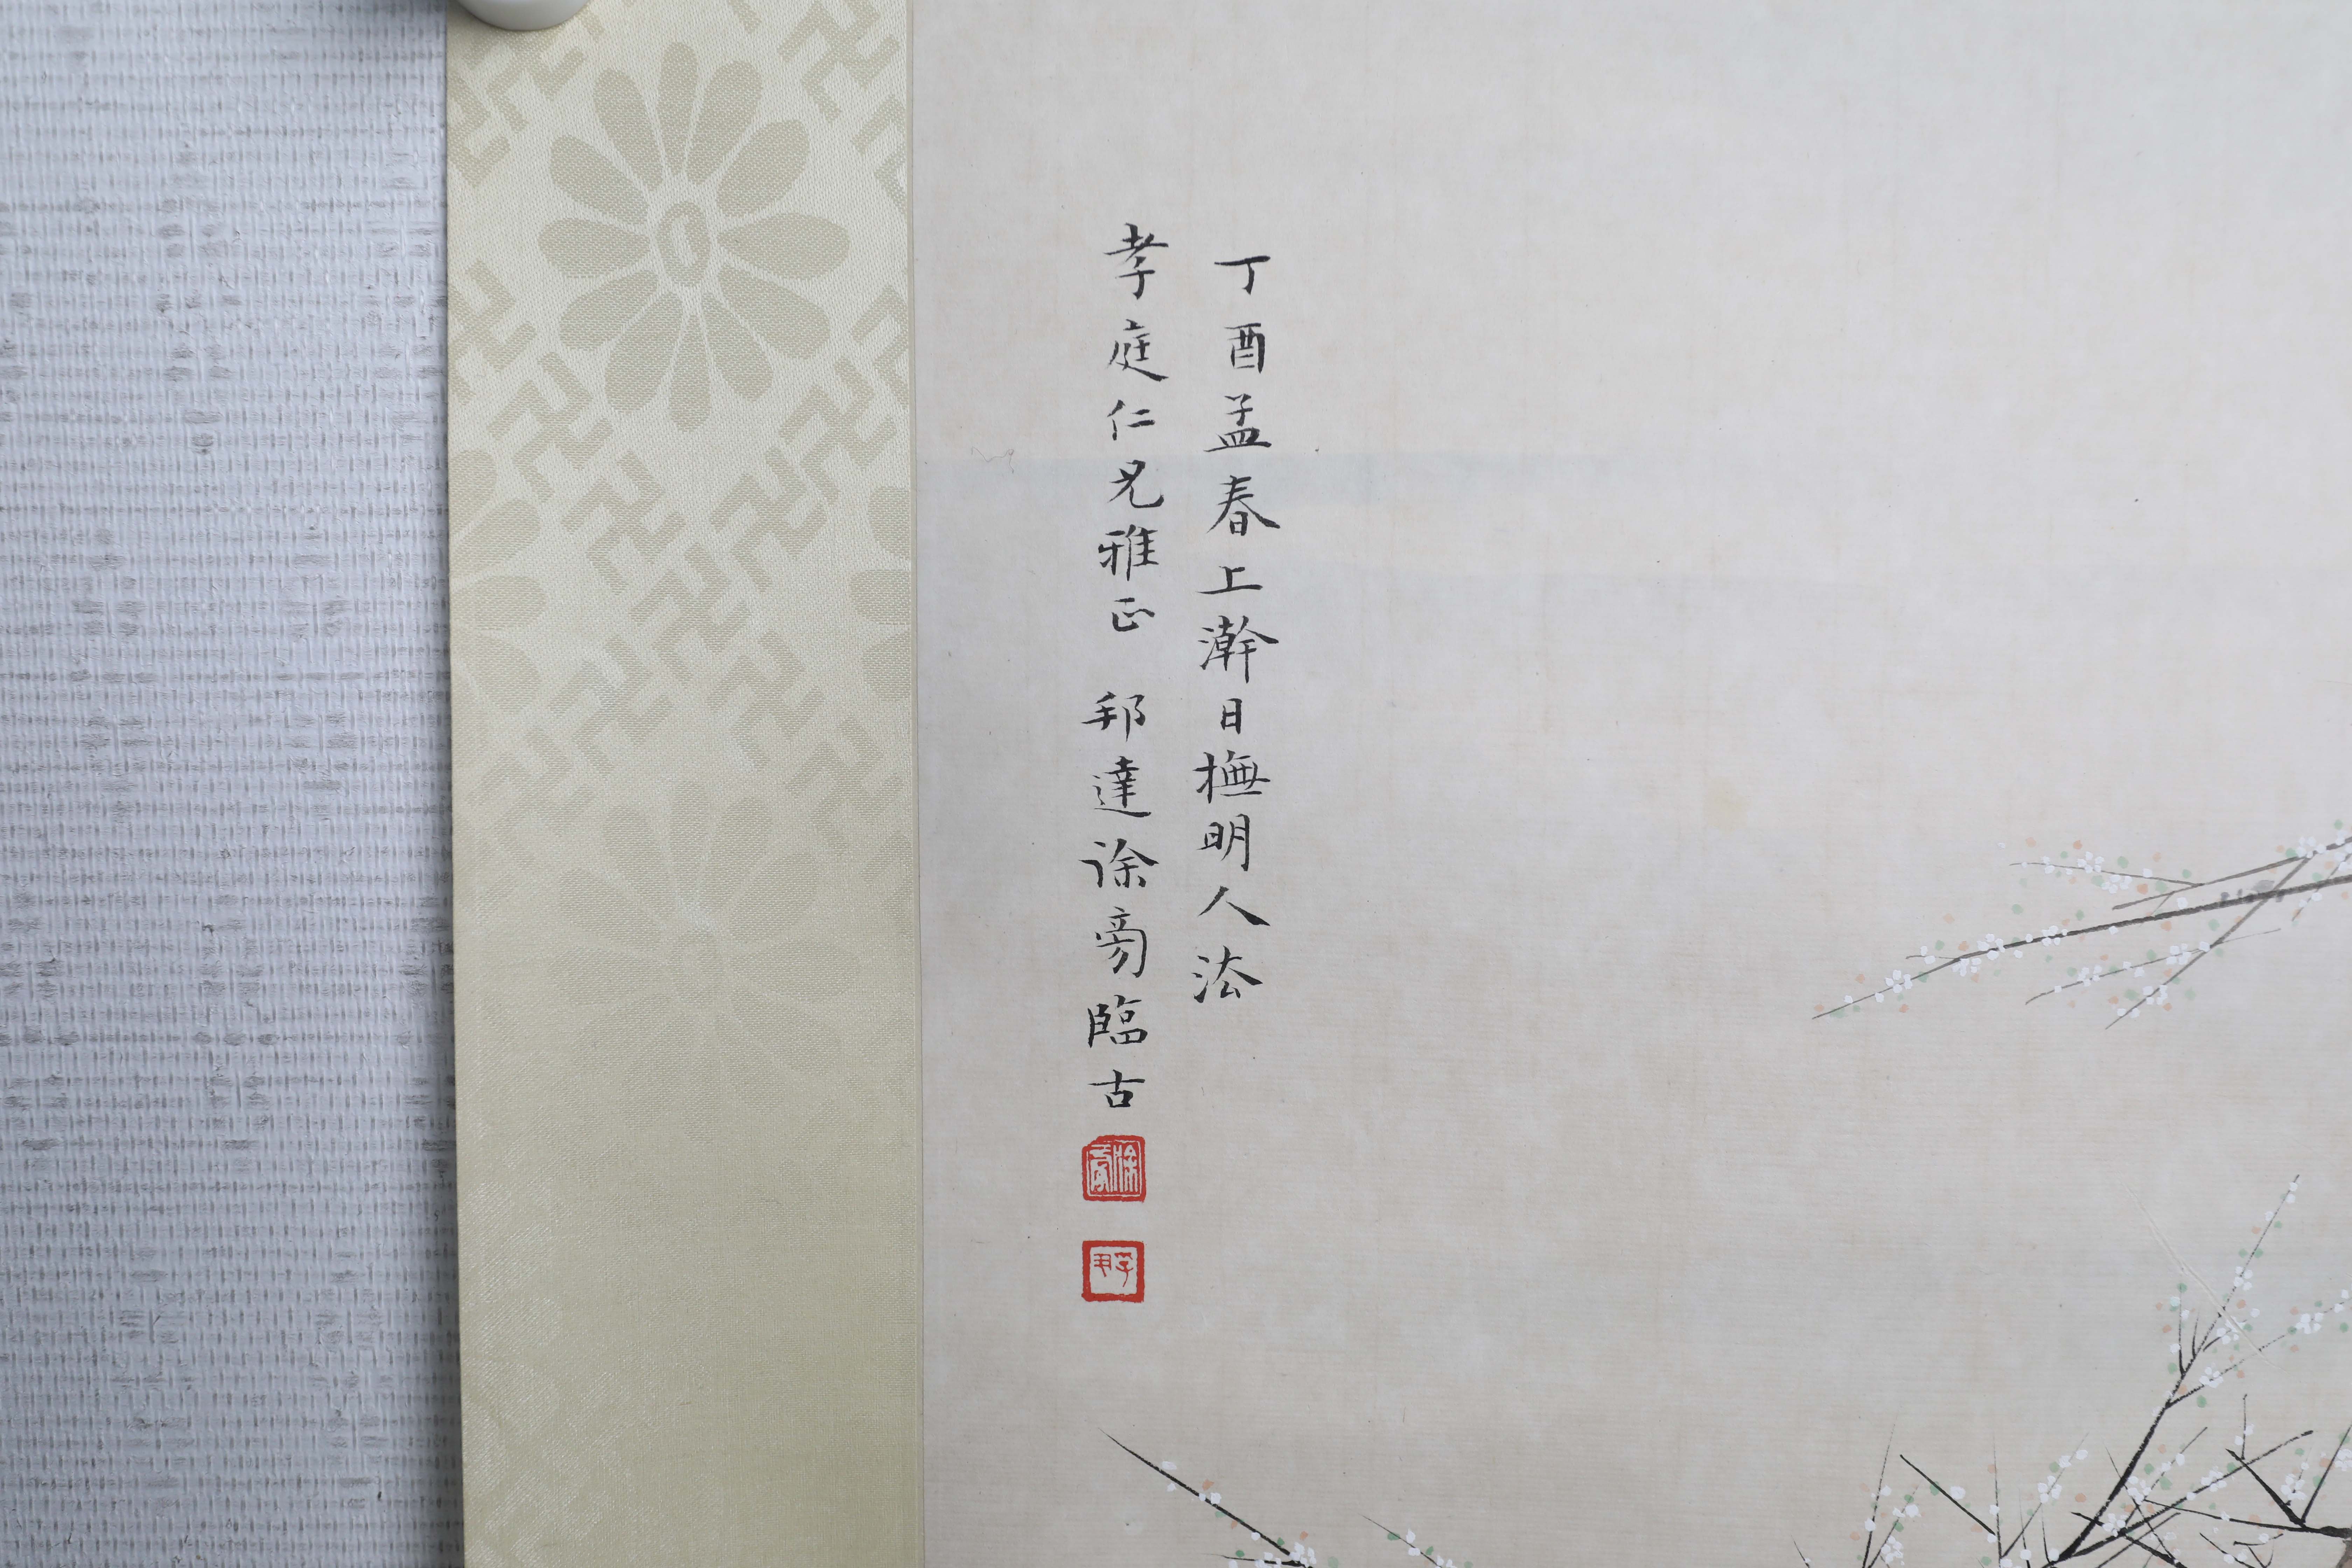 丁酉孟春上澣日橅明人法
孝庭仁兄雅正 邦達徐旁臨古